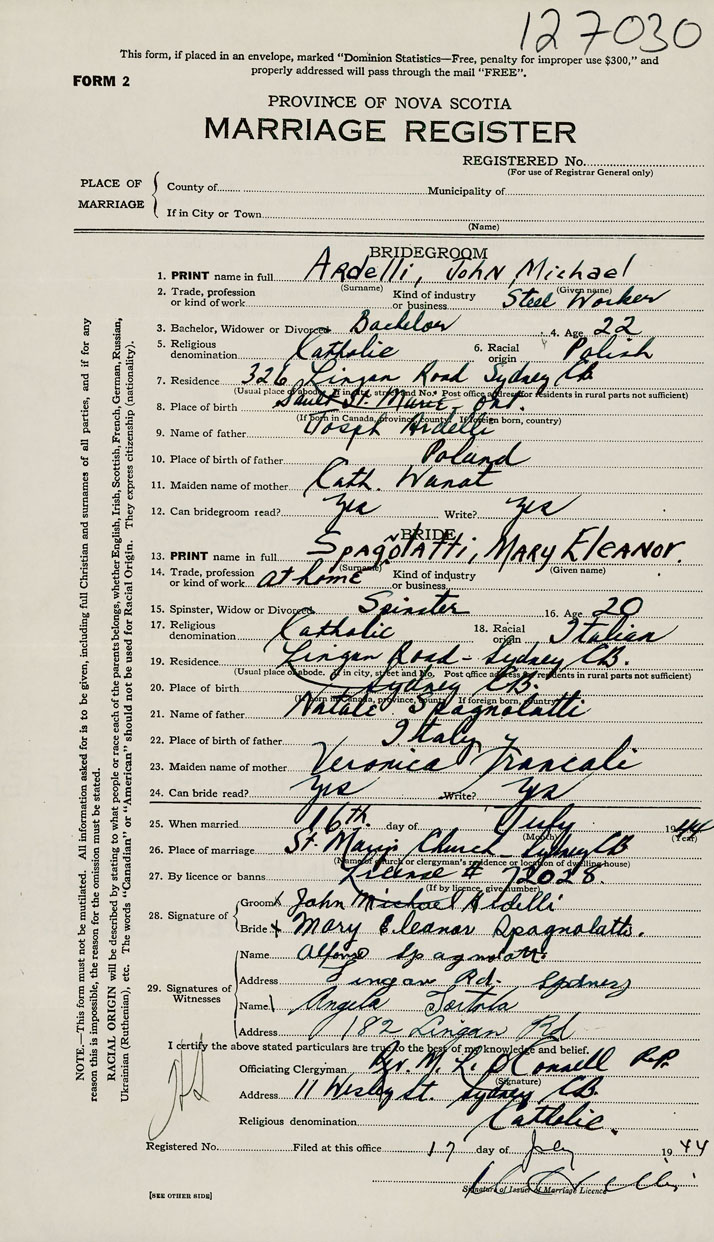 127030
This form, if placed in an envelope, marked "Dominion Statistics—Free, penalty for improper use $300," and
properly addressed will pass through the mail "FREE".
FORM 2
PROVINCE OF NOVA SCOTIA
MARRIAGE REGISTER
REGISTERED No.
(For use of Registrar General only)
PLACE OF MARRIAGE
County of Municipality of
If in City or Town
(Name)
BRIDEGROOM
1. PRINT name in full Ardelli, John Michael
(Surname) (Given name)
2. Trade, profession or kind of work Kind of industry or business Steel Worker
3. Bachelor, Widower or Divorced Bachelor 4. Age 22
5. Religious denomination Catholic 6. Racial origin Polish
7. Residence 326 Lingan Road Sydney CB
(Usual place of abode. If in city, street and No. Post office address for residents in rural parts not sufficient)
8. Place of birth Sault St. Marie, Ont.
(If born in Canada, province, county. If foreign born, country)
9. Name of father Joseph Ardelli
10. Place of birth of father Poland
11. Maiden name of mother Cath. Wanat
12. Can bridegroom read? yes Write? yes
BRIDE
13. PRINT name in full Spagnolatti, Mary Eleanor.
(Surname) (Given name)
14. Trade, profession or kind of work at home Kind of industry or business
15. Spinster, Widow or Divorced Spinster 16. Age 20
17. Religious denomination Catholic 18. Racial origin Italian
19. Residence Lingan Road - Sydney CB.
(Usual place of abode. If in city, street and No. Post office address for residents in rural parts not sufficient)
20. Place of birth Sydney CB.
(If born in Canada, province, county. If foreign born, country)
21. Name of father Natale Spagnolatti
22. Place of birth of father Italy
23. Maiden name of mother Veronica Francali
24. Can bride read? yes Write? yes
25. When married 16th day of July 1944
(Month) (Year)
26. Place of marriage St. Mary's Church - Sydney CB
(Name of church or clergyman's residence or location of dwelling house)
27. By licence or banns License # 72028.
(If by licence, give number)
28. Signature of
Groom x John Michael Ardelli
Bride x Mary Eleanor Spagnolatti.
29. Signatures of Witnesses
Name Alfonso Spagnolatti
Address Lingan Rd. Sydney
Name Angela Tortola
Address 182 Lingan Rd
I certify the above stated particulars are true to the best of my knowledge and belief.
Officiating Clergyman Rev. M. L. O'Connell P.P.
(Signature)
Address 11 Wesley St. Sydney CB.
Religious denomination Catholic.
Registered No. Filed at this office 17 day of July 1944
Signature of Issuer of Marriage Licence
[SEE OTHER SIDE]
NOTE.—This form must not be mutilated. All information asked for is to be given, including full Christian and surnames of all parties, and if for any
reason this is impossible, the reason for the omission must be stated.
RACIAL ORIGIN will be described by stating to what people or race each of the parents belongs, whether English, Irish, Scottish, French, German, Russian,
Ukrainian (Ruthenian), etc. The words "Canadian" or "American" should not be used for Racial Origin. They express citizenship (nationality).